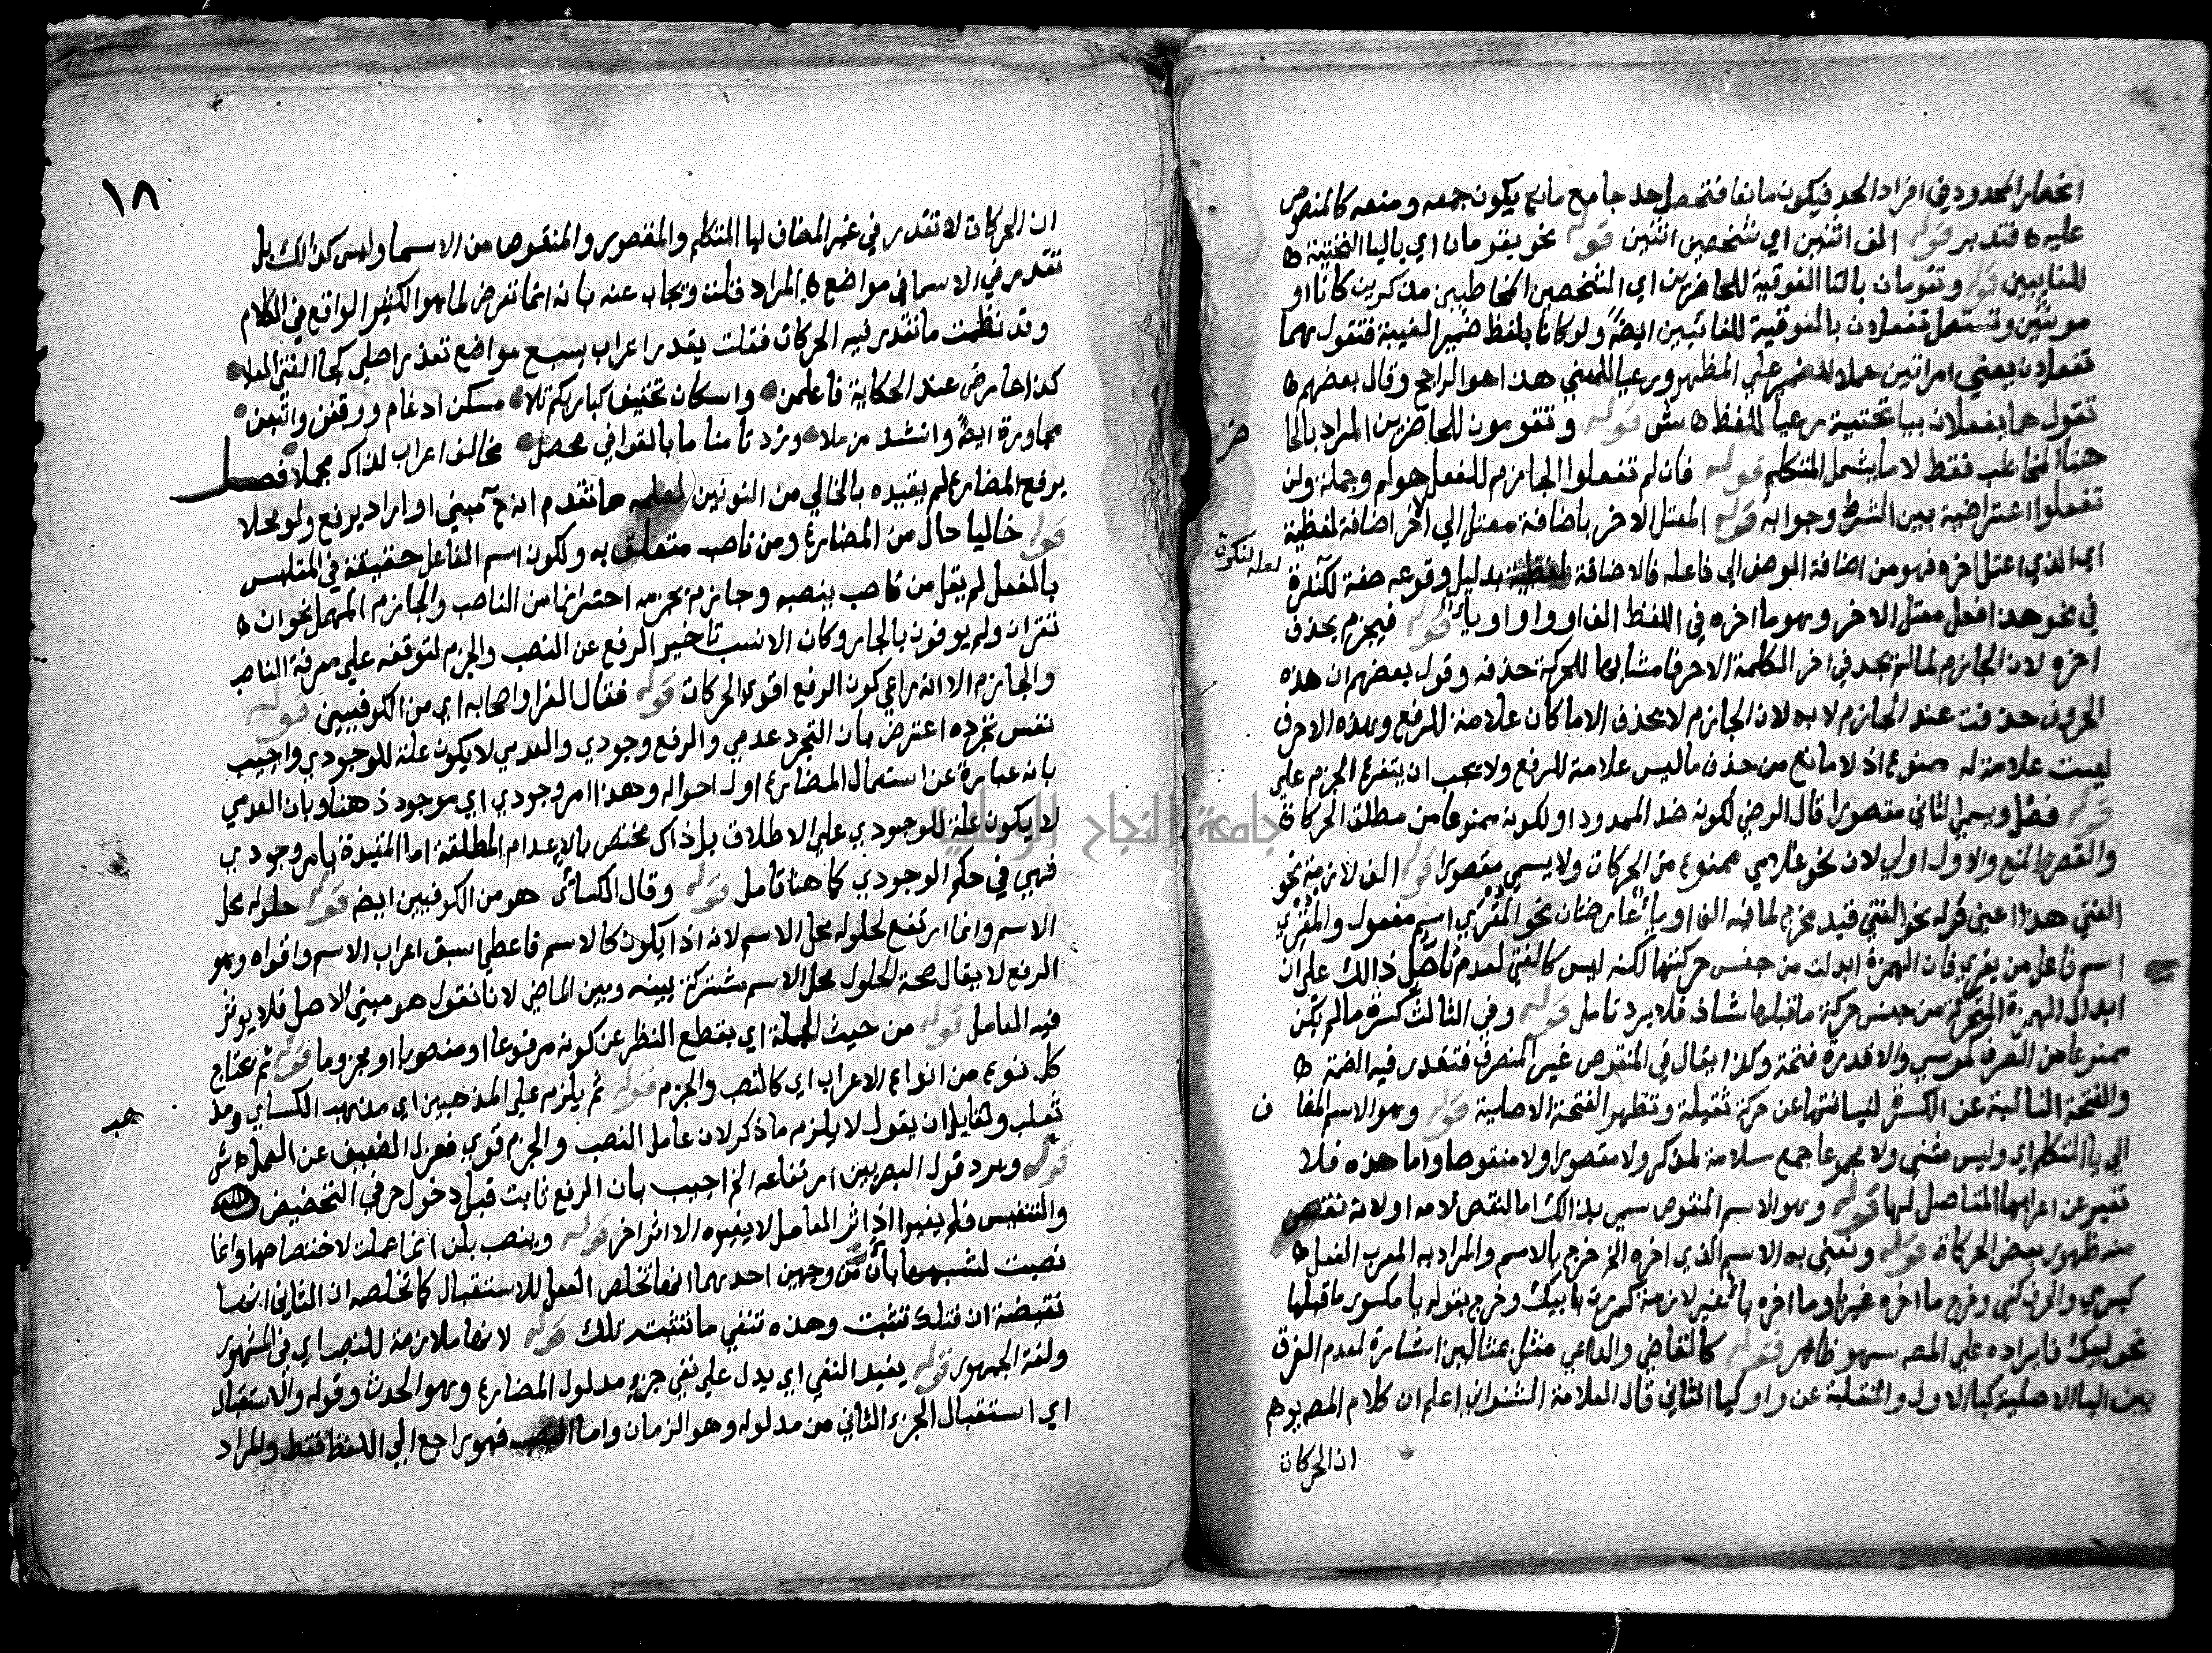 انحصار المحدود في افراد الحد فيكون مانعا فتحصل حد جامع مانع يكون جمعه ومنعه كالمنصوص
عليه فتدبر قوله الف اثنين اي شخصين اثنين قوله نحو يقومان اي باليا التحتية
للغايبين قوله وتقومان بالتا الفوقية للحاضرين اي الشخصين المخاطبين مذكرين كانا او
مونثين وتستعمل تفعلان بالفوقية للغائبين ايضا ولو كانا بلفظ ضمير الغيبة فتقول هما
تفعلان يعني امراتين عملا للضمير علي المظهر ورعيا للمعني هذا هو الراجح وقال بعضهم
تقول هما يفعلان بيا تحتية رعيا للفظ ش قوله وتقومون للحاضرين المراد بالحا
ضر
هنا المخاطب فقط لا ما يشمل المتكلم قوله فان لم تفعلوا الجازم للفعل هو لم وجملة ولن
تفعلوا اعتراضية بين الشرط وجوابه قوله المعتل الاخر باضافة معتل الي الاخر اضافة لفظية
اي الذي اعتل اخره فهو من اضافة الوصف الي فاعله فالاضافة لفظية بدليل وقوعه صفة لكثرة
لعله لنكرة
في نحو هذا فعل معتل الاخر وهو ما اخره في اللفظ الف او واو او يا قوله فيجزم بحذف
اخره لان الجازم لما لم يجد في اخر الكلمة الاحرفا مشابها للحركة حذفه وقول بعضهم ان هذه
الحروف حذفت عند الجازم لا به لان الجازم لا يحذف الا ما كان علامة للرفع وهذه الاحرف
ليست علامة له ممنوع اذ لا مانع من حذف ما ليس علامة للرفع ولا يجب ان يتفرع الجزم علي
قوله فصل ويسمي الثاني مقصورا قال الرضي لكونه ضد الممدود او لكونه ممنوعا من مطلق الحركات
والقصر المنع والاول اولي لان نحو غلامي ممنوع من الحركات ولا يسمي مقصورا قوله الف لازمة نحو
الفتي هذا اعني قوله نحو الفتي قيد مخرج لما فيه الف او يا عارضتان نحو المقري اسم مفعول والمقري
اسم فاعل من يقري فان الهمزة ابدلت من جنس حركتها لكنه ليس كالفتي لعدم تاصل ذالك علي ان
ابدال الهمزة المتحركة من جنس حركة ما قبلها شاذ فلا يرد تامل قوله وفي الثالث كسرة ما لم يكن
ممنوعا من الصرف كموسي والا قدرة فتحة وكذا يقال في المنقوص غير المنصرف فتقدر فيه الضمة
والفتحة النائبة عن الكسرة لنيابتها عن حركة ثقيلة وتظهر الفتحة الاصلية قوله وهو الاسم المضا
ف
الي يا المتكلم اي وليس مثني ولا مجموعا جمع سلامة لمذكر ولا مقصورا ولا منقوصا واما هذه فلا
تغيير عن اعرابها المتاصل لها قوله وهو الاسم المنقوص سمي بذالك اما لنقص لامه او لانه نقص
منه ظهور بعض الحركاة قوله ونعني به الاسم الذي اخره الخ خرج بالاسم والمراد به المعرب الفعل
كيرمي والحرف كفي وخرج ما اخره غير يا وما اخره يا غير لازمة كمررت بابيك وخرج بقوله يا مكسور ما قبلها
نحو لبيك فايراده علي المصه سهو ظاهر قوله كالقاضي والداعي مثل بمثالين اشارة لعدم الفرق
بين اليا الاصلية كيا الاول والمنقلبة عن واو كيا الثاني قال العلامة الشنواني اعلم ان كلام المصه يوهم
ان الحركات
١٨
ان الحركات لا تقدر في غير المضاف ليا المتكلم والمقصور والمنقوص من الاسما وليس كذالك بل
تقدر في الاسما في مواضع المراد قلت ويجاب عنه بانه انما تعرض لما هو الكثير الواقع في الكلام
وقد نظمت ما تقدر فيه الحركات فقلت يقدر اعراب بسبع مواضع تعذر اصلي كيا الفتي العلا
كذا عارض عند الحكاية فاعلمن واسكان تخفيف كباريكم تلا مسكن ادغام ووقفن واتبعن
مجاورة ايضا وانشد مرملا وزد ثامنا ما بالقوافي محصل مخالف اعراب لذاك مجملا فصل
يرفع المضارع لم يقيده بالخالي من النونين لعلمه مما تقدم انه ح مبني او اراد يرفع ولو محلا
قوله خاليا حال من المضارع ومن ناصب متعلق به ولكون اسم الفاعل حقيقة في المتلبس
بالفعل لم يقل من ناصب ينصبه وجازم يجزمه احترازا من الناصب والجازم المهمل نحو ان
تقران ولم يوفون بالجار وكان الانسب تاخير الرفع عن النصب والجزم لتوقفه علي معرفة الناصب
والجازم الا انه راعي كون الرفع اقوي الحركات قوله فقال الفرا واصحابه اي من الكوفيين قوله
نفس تجرده اعترض بان التجرد عدمي والرفع وجودي والعدمي لا يكون علة للوجودي واجيب
بانه عبارة عن استعمال المضارع اول احواله وهذا امر وجودي اي موجود ذهنا وبان العدمي
لا يكون علة للوجودي علي الاطلاق بل ذاك مختص بالاعدام المطلقة اما المقيدة بامر وجودي
فهي في حكم الوجودي كما هنا تامل قوله وقال الكسائي هو من الكوفيين ايضه قوله حلوله محل
الاسم وانما ارتفع لحلوله محل الاسم لانه اذا يكون كالاسم فاعطي اسبق اعراب الاسم واقواه وهو
الرفع لا يقال صحة الحلول محل الاسم مشتركة بينه وبين الماضي لانا نقول هو مبني الاصل فلا يوثر
فيه العامل قوله من حيث الجملة اي بقطع النظر عن كونه مرفوعا او منصوبا او مجزوما قوله ثم يحتاج
كل نوع من انواع الاعراب اي كالنصب والجزم قوله ثم يلزم علي المذهبين اي مذهب الكساي ومذ
هب
ثعلب ولقايل ان يقول لا يلزم ما ذكر لان عامل النصب والجزم قوي فعزل الضعيف عن العمل ش
قوله ويرد قول البصريين ارتفاعه الخ اجيب بان الرفع ثابت قبل دخول حرفي التخضيض
والتنفيس فلم يغيرا اذ اثر العامل لا يغيره الا اثر اخر قوله وينصب بلن انما عملت لاختصاصها وانما
نصبت لشبهها بان من وجهين احدهما انها تخلص الفعل للاستقبال كما تخلصه ان الثاني انها
نقيضة ان فتلك تثبت وهذه تنفي ما تثبت تلك قوله لانها ملازمة للنصب اي في المشهور
ولغة الجمهور قوله يفيد النفي اي يدل علي نفي جزء مدلول المضارع وهو الحدث وقوله والاستقبال
اي استقبال الجزء الثاني من مدلوله وهو الزمان واما النصب فهو راجع الي اللفظ فقط والمراد
جامعة النجاح الوطنية